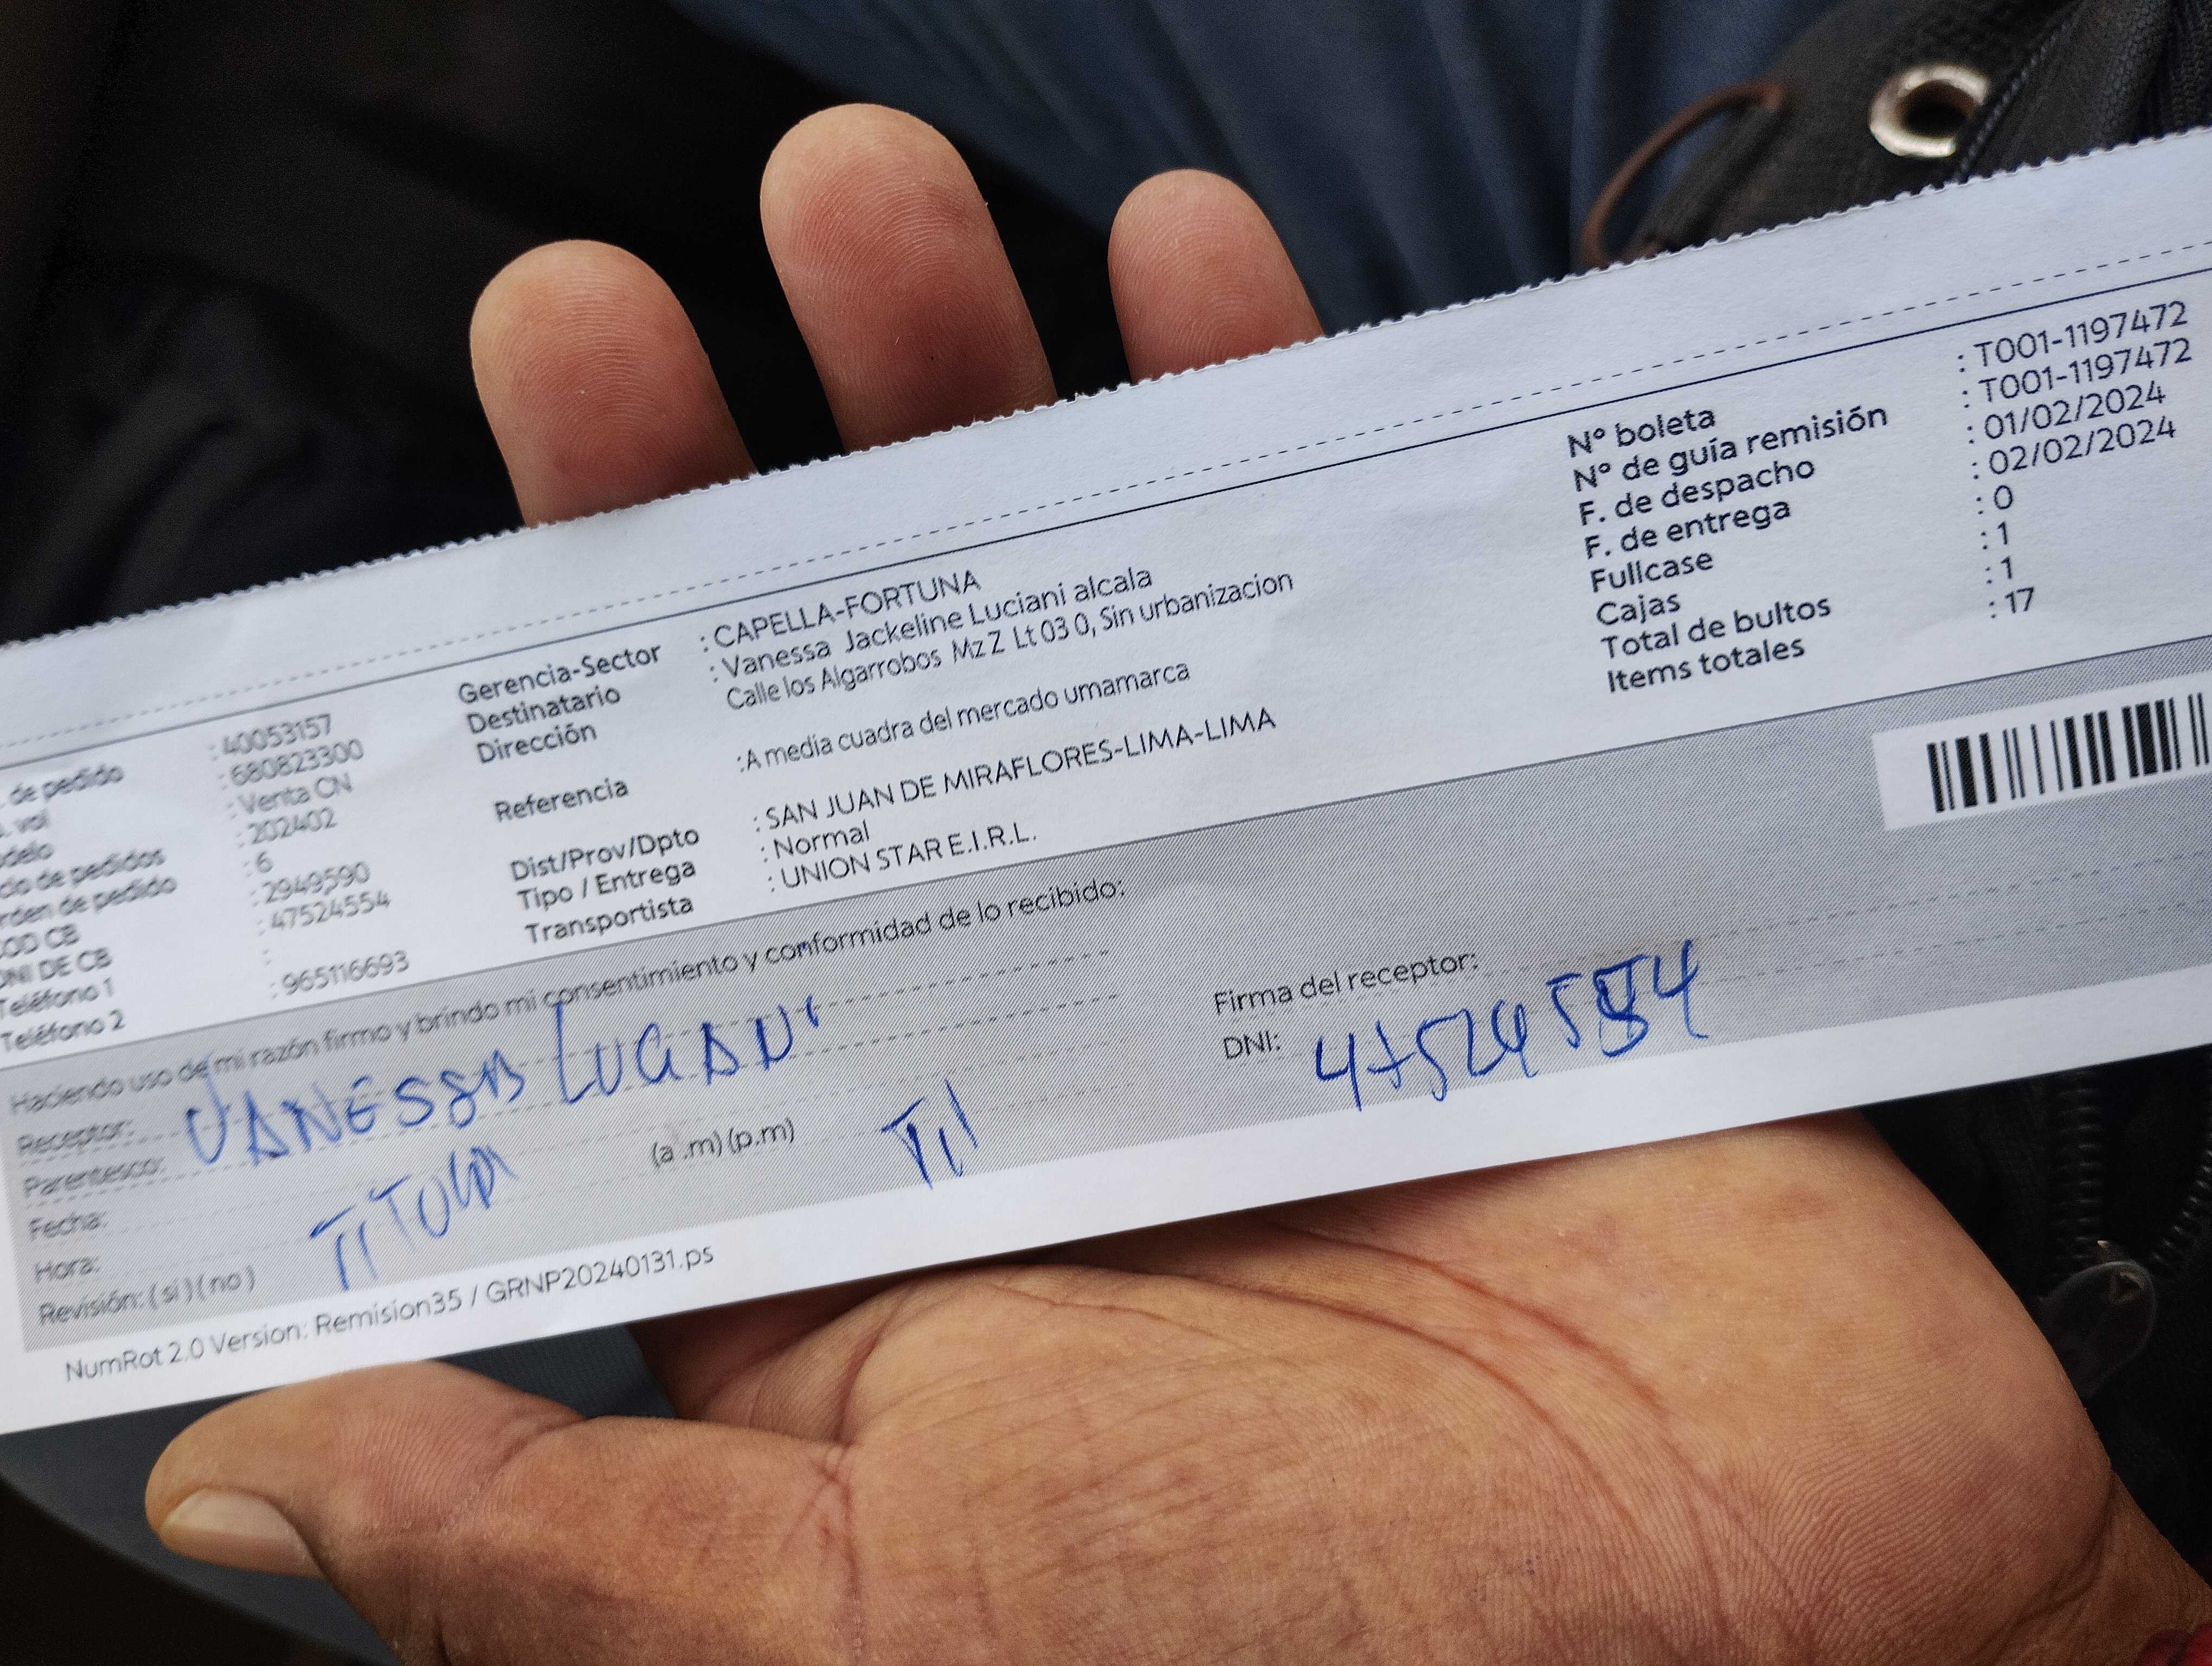 de pedido : 40053157
vol : 680823300
delo : Venta CN
de pedidos : 202402
rden de pedido : 6
COD CB : 2949590
DNI DE CB : 47524554
Teléfono 1 :
Teléfono 2 : 965116693
Gerencia-Sector : CAPELLA-FORTUNA
Destinatario : Vanessa Jackeline Luciani alcala
Dirección Calle los Algarrobos Mz Z Lt 03 0, Sin urbanizacion
Referencia :A media cuadra del mercado umamarca
Dist/Prov/Dpto : SAN JUAN DE MIRAFLORES-LIMA-LIMA
Tipo / Entrega : Normal
Transportista : UNION STAR E.I.R.L.
N° boleta : T001-1197472
N° de guía remisión : T001-1197472
F. de despacho : 01/02/2024
F. de entrega : 02/02/2024
Fullcase : 0
Cajas : 1
Total de bultos : 1
Items totales : 17
Haciendo uso de mi razón firmo y brindo mi consentimiento y conformidad de lo recibido:
Receptor: VANESSA
Parentesco:
Fecha:
Hora: (a .m) (p.m)
Revisión: ( si ) ( no ) TITULAR
Firma del receptor:
DNI: 47524554
NumRot 2.0 Version: Remision35 / GRNP20240131.ps